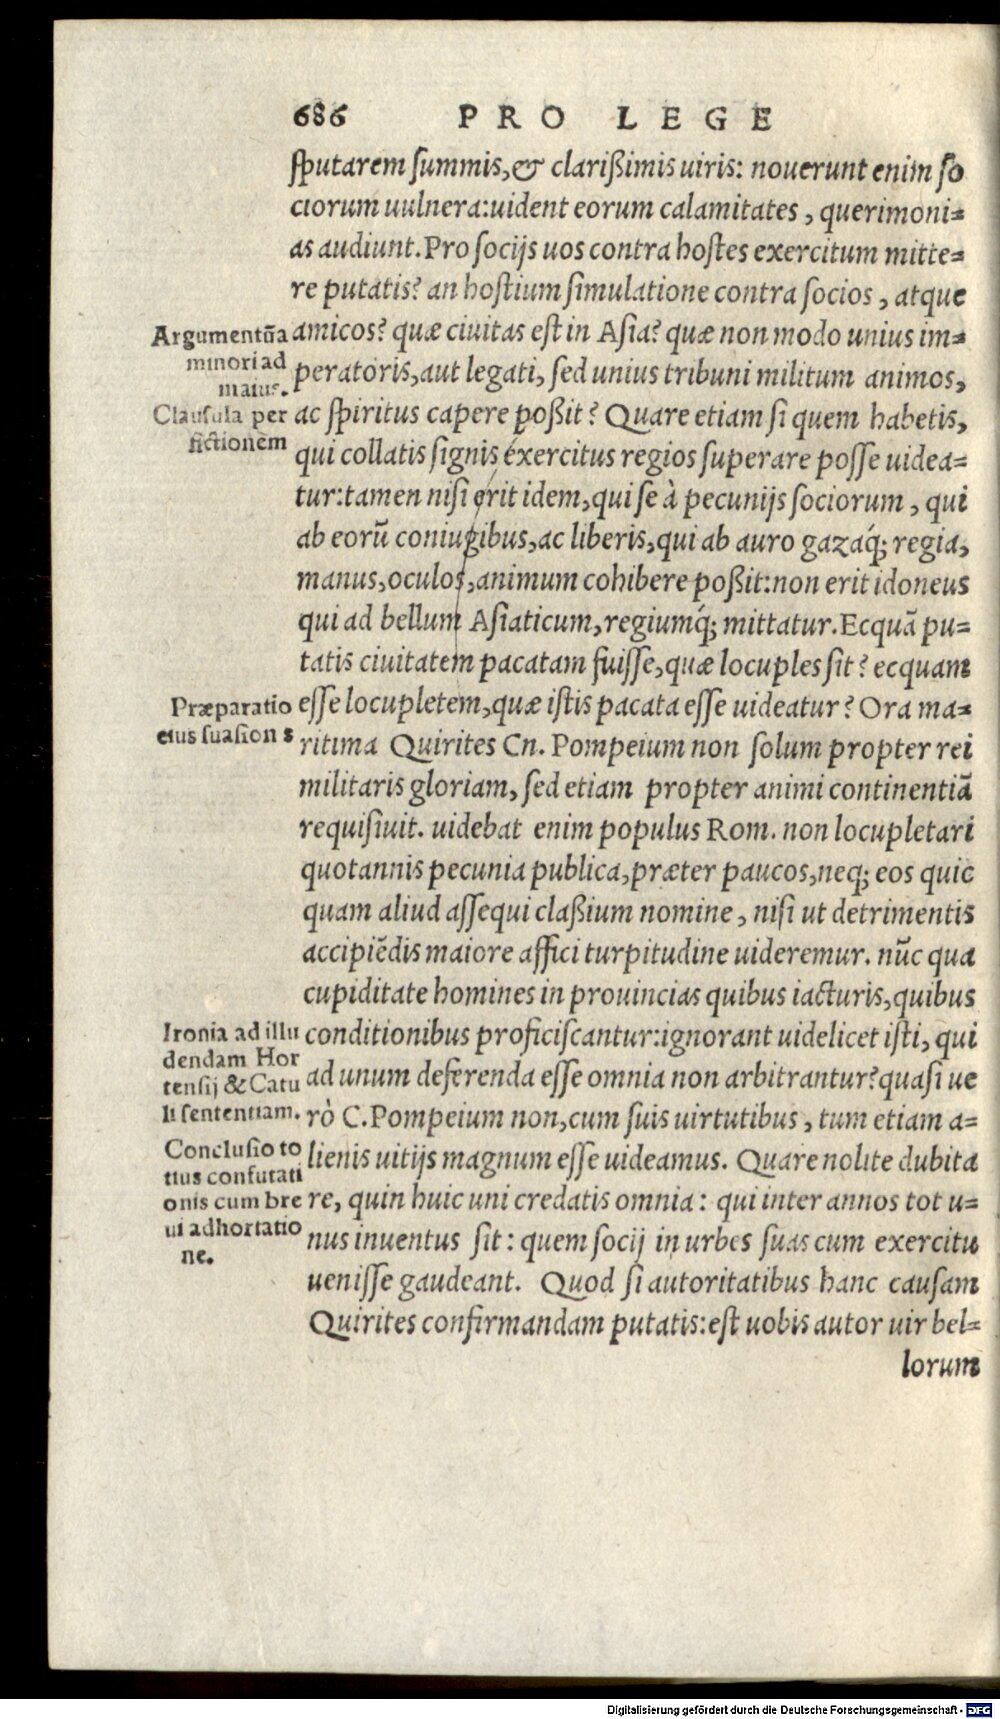 686 PRO LEGE
sputarem summis, & clarißimis uiris: nouerunt enim so
ciorum uulnera: uident eorum calamitates, querimoni=
as audiunt. Pro socijs uos contra hostes exercitum mitte=
re putatis? an hostium simulatione contra socios, atque
amicos? quæ ciuitas est in Asia? quæ non modo unius im=
peratoris, aut legati, sed unius tribuni militum animos,
ac spiritus capere poßit? Quare etiam si quem habetis,
qui collatis signis éxercitus regios superare posse uidea=
tur: tamen nisi erit idem, qui se à pecunijs sociorum, qui
ab eorũ coniugibus, ac liberis, qui ab auro gazaq́; regia,
manus, oculos, animum cohibere poßit: non erit idoneus
qui ad bellum Asiaticum, regiumq́; mittatur. Ecquã pu=
tatis ciuitatem pacatam fuisse, quæ locuples sit? ecquam
esse locupletem, quæ istis pacata esse uideatur? Ora ma=
ritima Quirites Cn. Pompeium non solum propter rei
militaris gloriam, sed etiam propter animi continentiã
requisiuit. uidebat enim populus Rom. non locupletari
quotannis pecunia publica, præter paucos, neq; eos quic
quam aliud assequi claßium nomine, nisi ut detrimentis
accipiẽdis maiore affici turpitudine uideremur. nũc qua
cupiditate homines in prouincias quibus iacturis, quibus
conditionibus proficiscantur: ignorant uidelicet isti, qui
ad unum deferenda esse omnia non arbitrantur? quasi ue
rò C. Pompeium non, cum suis uirtutibus, tum etiam a=
lienis uitijs magnum esse uideamus. Quare nolite dubita
re, quin huic uni credatis omnia: qui inter annos tot u=
nus inuentus sit: quem socij in urbes suas cum exercitu
uenisse gaudeant. Quod si autoritatibus hanc causam
Quirites confirmandam putatis: est uobis autor uir bel=
lorum
Argumentũ a
minori ad
maius.
Clausula per
fictionem
Præparatio
eius suasionis
Ironia ad illu
dendam Hor
tensij & Catu
li sententiam.
Conclusio to
tius confutati
onis cum bre
ui adhortatio
ne.
Digitalisierung gefördert durch die Deutsche Forschungsgemeinschaft - DFG